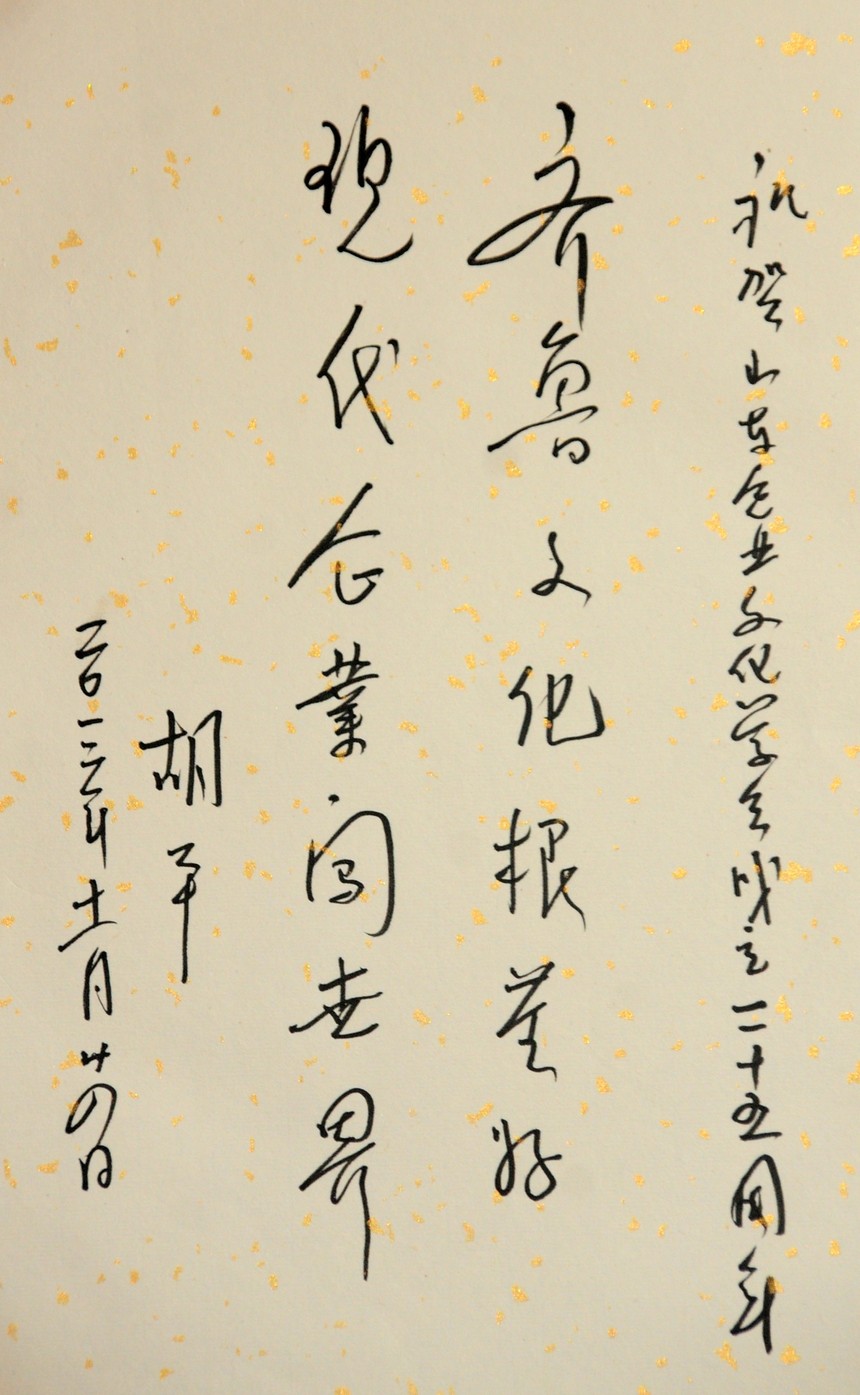 祝贺山东企业文化学会成立二十五周年
齐鲁文化根基好
现代企業闯世界
胡平
二〇一二年十一月廿四日